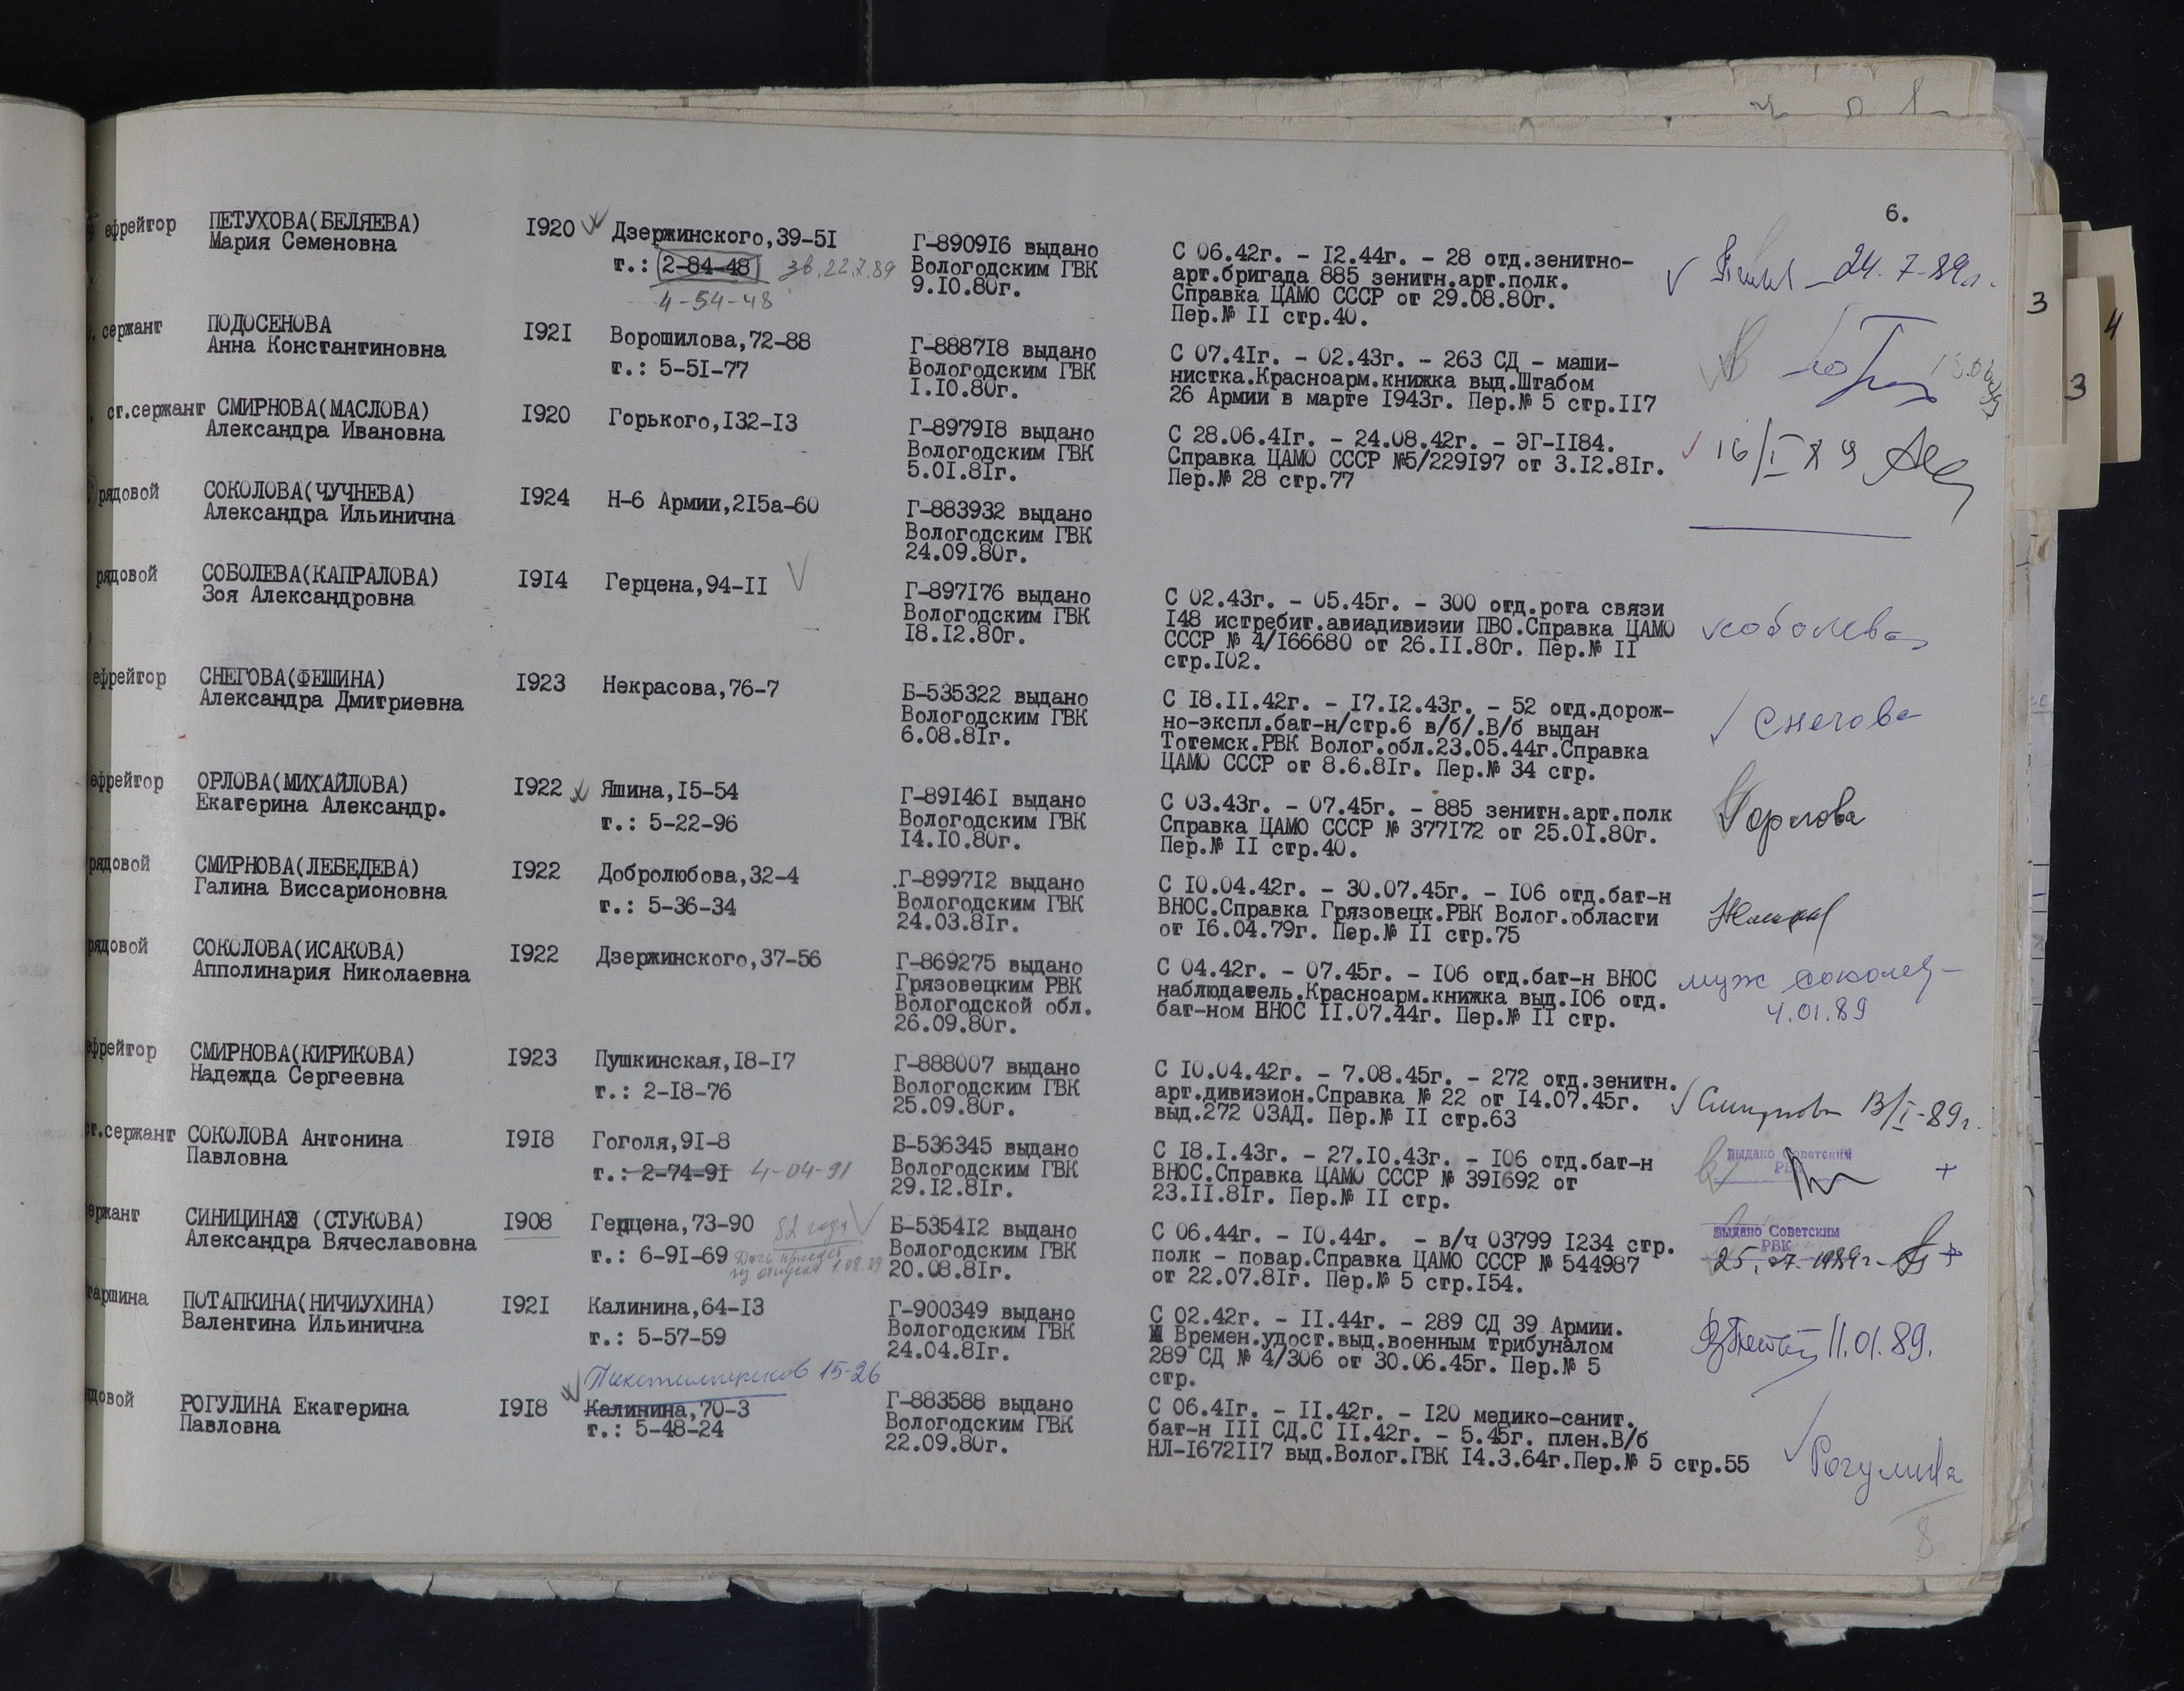 6.
ефрейтор ПЕТУХОВА(БЕЛЯЕВА) I920 Дзержинского,39-5I
Мария Семеновна
т.: 2-84-48 зв.22.7.89
4-54-48
Г-8909I6 выдано
Вологодским ГВК
9.I0.80г.
С 06.42г. - I2.44г. - 28 отд.зенитно-
арт.бригада 885 зенитн.арт.полк.
Справка ЦАМО СССР от 29.08.80г.
Пер.№ II стр.40.
24.7-89г.
сержант ПОДОСЕНОВА I92I Ворошилова,72-88
Анна Константиновна
т.: 5-5I-77
Г-8887I8 выдано
Вологодским ГВК
I.I0.80г.
С 07.4Iг. - 02.43г. - 263 СД - маши-
нистка.Красноарм.книжка выд.Штабом
26 Армии в марте I943г. Пер.№ 5 стр.II7
ст.сержант СМИРНОВА(МАСЛОВА) I920 Горького,I32-I3
Александра Ивановна
Г-8979I8 выдано
Вологодским ГВК
5.0I.8Iг.
С 28.06.4Iг. - 24.08.42г. - ЭГ-II84.
Справка ЦАМО СССР №5/229I97 от 3.I2.8Iг.
Пер.№ 28 стр.77
16/I 89
рядовой СОКОЛОВА(ЧУЧНЕВА) I924 Н-6 Армии,2I5а-60
Александра Ильинична
Г-883932 выдано
Вологодским ГВК
24.09.80г.
рядовой СОБОЛЕВА(КАПРАЛОВА) I9I4 Герцена,94-II
Зоя Александровна
Г-897I76 выдано
Вологодским ГВК
I8.I2.80г.
С 02.43г. - 05.45г. - 300 отд.рота связи
I48 истребит.авиадивизии ПВО.Справка ЦАМО
СССР № 4/I66680 от 26.II.80г. Пер.№ II
стр.I02.
соболева
ефрейтор СНЕГОВА(ФЕШИНА) I923 Некрасова,76-7
Александра Дмитриевна
Б-535322 выдано
Вологодским ГВК
6.08.8Iг.
С I8.II.42г. - I7.I2.43г. - 52 отд.дорож-
но-экспл.бат-н/стр.6 в/б/.В/б выдан
Тотемск.РВК Волог.обл.23.05.44г.Справка
ЦАМО СССР от 8.6.8Iг. Пер.№ 34 стр.
Снегова
ефрейтор ОРЛОВА(МИХАЙЛОВА) I922 Яшина,I5-54
Екатерина Александр.
т.: 5-22-96
Г-89I46I выдано
Вологодским ГВК
I4.I0.80г.
С 03.43г. - 07.45г. - 885 зенитн.арт.полк
Справка ЦАМО СССР № 377I72 от 25.0I.80г.
Пер.№ II стр.40.
Орлова
рядовой СМИРНОВА(ЛЕБЕДЕВА) I922 Добролюбова,32-4
Галина Виссарионовна
т.: 5-36-34
.Г-8997I2 выдано
Вологодским ГВК
24.03.8Iг.
С I0.04.42г. - 30.07.45г. - I06 отд.бат-н
ВНОС.Справка Грязовецк.РВК Волог.области
от I6.04.79г. Пер.№ II стр.75
рядовой СОКОЛОВА(ИСАКОВА) I922 Дзержинского,37-56
Апполинария Николаевна
Г-869275 выдано
Грязовецким РВК
Вологодской обл.
26.09.80г.
С 04.42г. - 07.45г. - I06 отд.бат-н ВНОС
наблюдатель.Красноарм.книжка выд.I06 отд.
бат-ном ВНОС II.07.44г. Пер.№ II стр.
муж
4.01.89
ефрейтор СМИРНОВА(КИРИКОВА) I923 Пушкинская,I8-I7
Надежда Сергеевна
т.: 2-I8-76
Г-888007 выдано
Вологодским ГВК
25.09.80г.
С I0.04.42г. - 7.08.45г. - 272 отд.зенитн.
арт.дивизион.Справка № 22 от I4.07.45г.
выд.272 ОЗАД. Пер.№ II стр.63
Смирнова 13/I-89г.
ст.сержант СОКОЛОВА Антонина I9I8 Гоголя,9I-8
Павловна
т.: 2-74-9I 4-04-91
Б-536345 выдано
Вологодским ГВК
29.I2.8Iг.
С I8.I.43г. - 27.I0.43г. - I06 отд.бат-н
ВНОС.Справка ЦАМО СССР № 39I692 от
23.II.8Iг. Пер.№ II стр.
Выдано Советским
РВК
+
ержант СИНИЦИНА (СТУКОВА) I908 Герцена,73-90 82 года
Александра Вячеславовна
т.: 6-9I-69 Дочь приедет
из отпуска 1.08.89
Б-5354I2 выдано
Вологодским ГВК
20.08.8Iг.
С 06.44г. - I0.44г. - в/ч 03799 I234 стр.
полк - повар.Справка ЦАМО СССР № 544987
от 22.07.8Iг. Пер.№ 5 стр.I54.
Выдано Советским
РВК
25.07.1989г. +
таршина ПОТАПКИНА(НИЧИУХИНА) I92I Калинина,64-I3
Валентина Ильинична
т.: 5-57-59
Г-900349 выдано
Вологодским ГВК
24.04.8Iг.
С 02.42г. - II.44г. - 289 СД 39 Армии.
Времен.удост.выд.военным трибуналом
289 СД № 4/306 от 30.06.45г. Пер.№ 5
стр.
11.01.89.
Текстильщиков 15-26
ядовой РОГУЛИНА Екатерина I9I8 Калинина,70-3
Павловна
т.: 5-48-24
Г-883588 выдано
Вологодским ГВК
22.09.80г.
С 06.4Iг. - II.42г. - I20 медико-санит.
бат-н III СД.С II.42г. - 5.45г. плен.В/б
НЛ-I672II7 выд.Волог.ГВК I4.3.64г.Пер.№ 5 стр.55
Рогулина
8
3
3
4